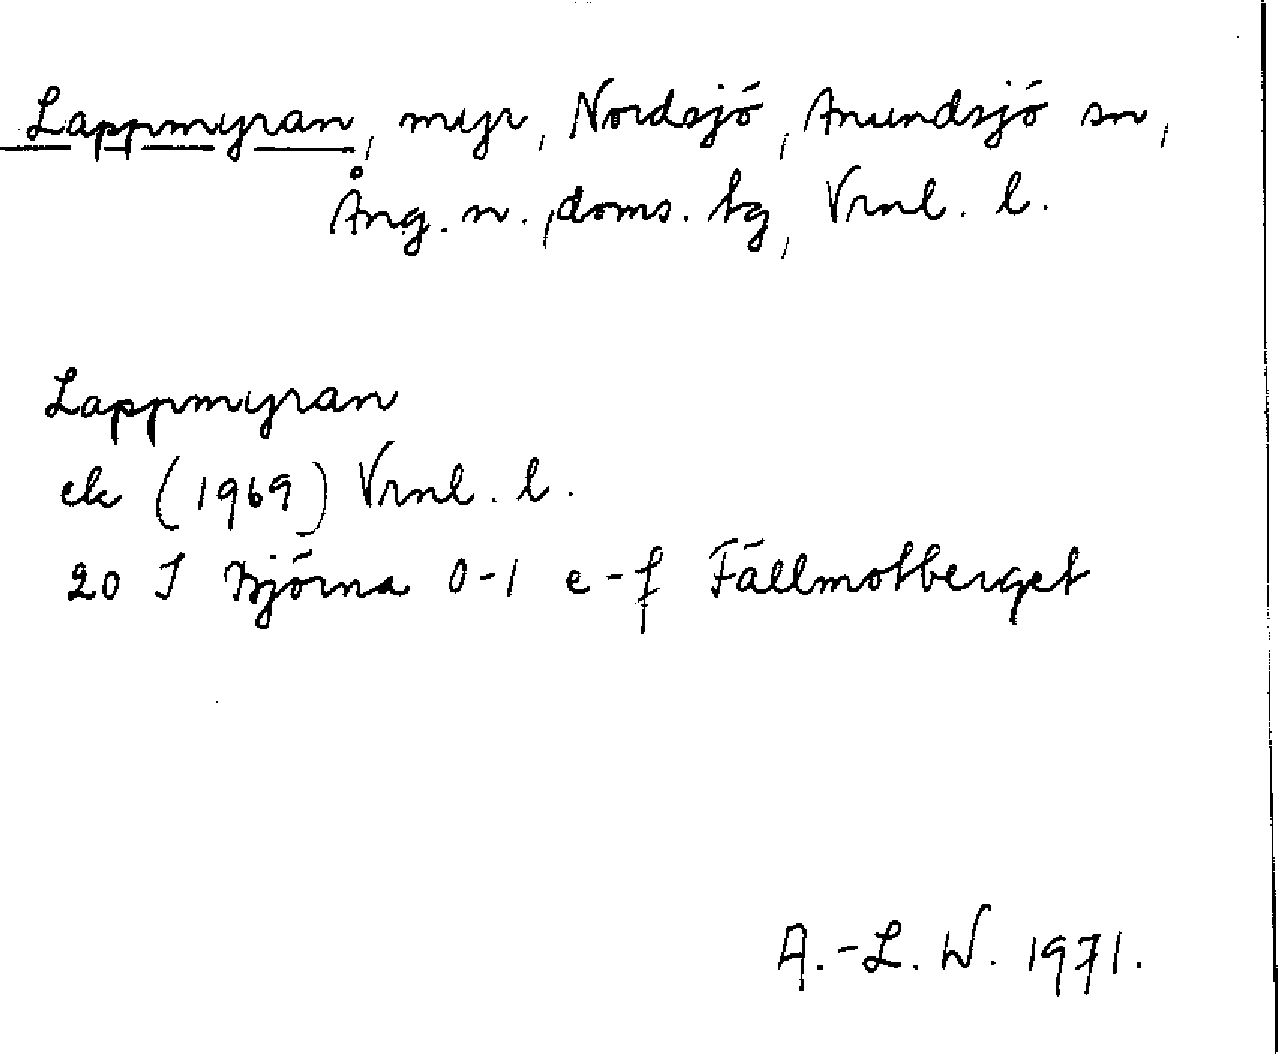 Lappmyran, myr, Nordsjö, Anundsjö sn,
Ång. n., doms. tg, Vrnl. l.
Lappmyran
ek (1969) Vrnl. l.
20 J Björna 0-1 e-f Fällmotberget
A.-L. W. 1971.